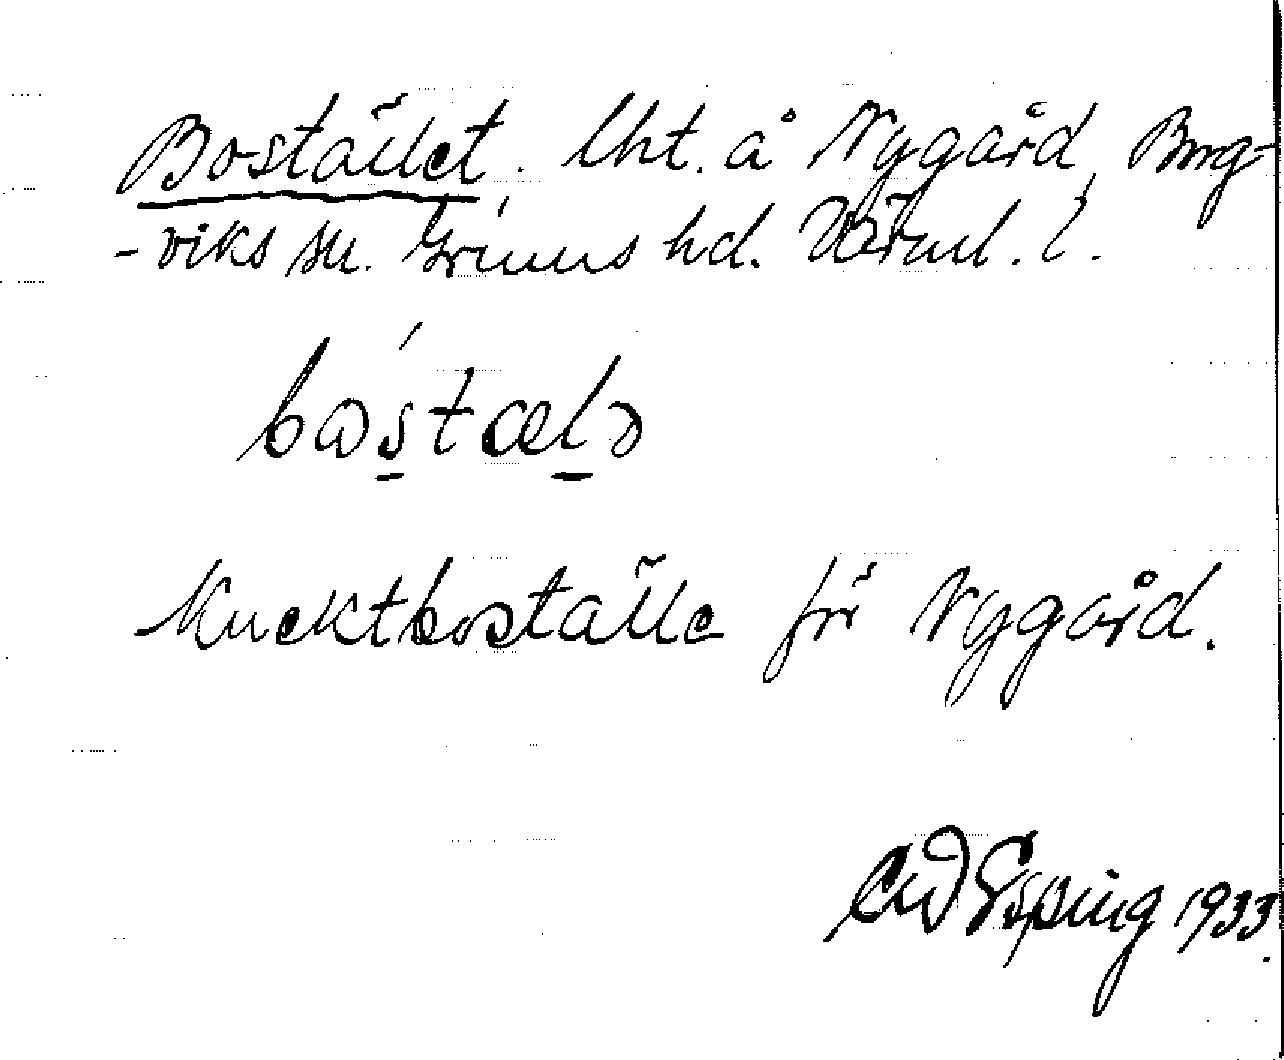 Bostället. lht. å Nygård, Borg-
-viks sn. Grums hd. Värml. l.
bɷstælə
Knektboställe för Nygård.
CW Esping 1933.